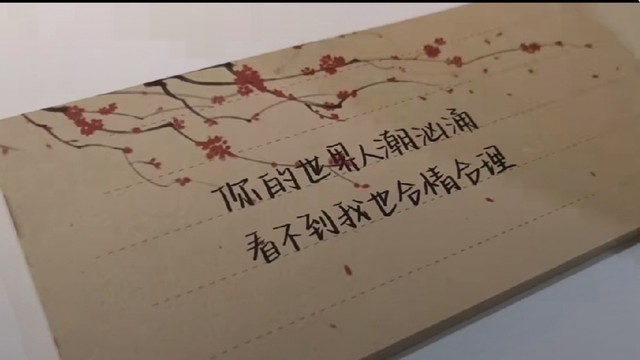 你的世界人潮汹涌
看不到我也合情合理